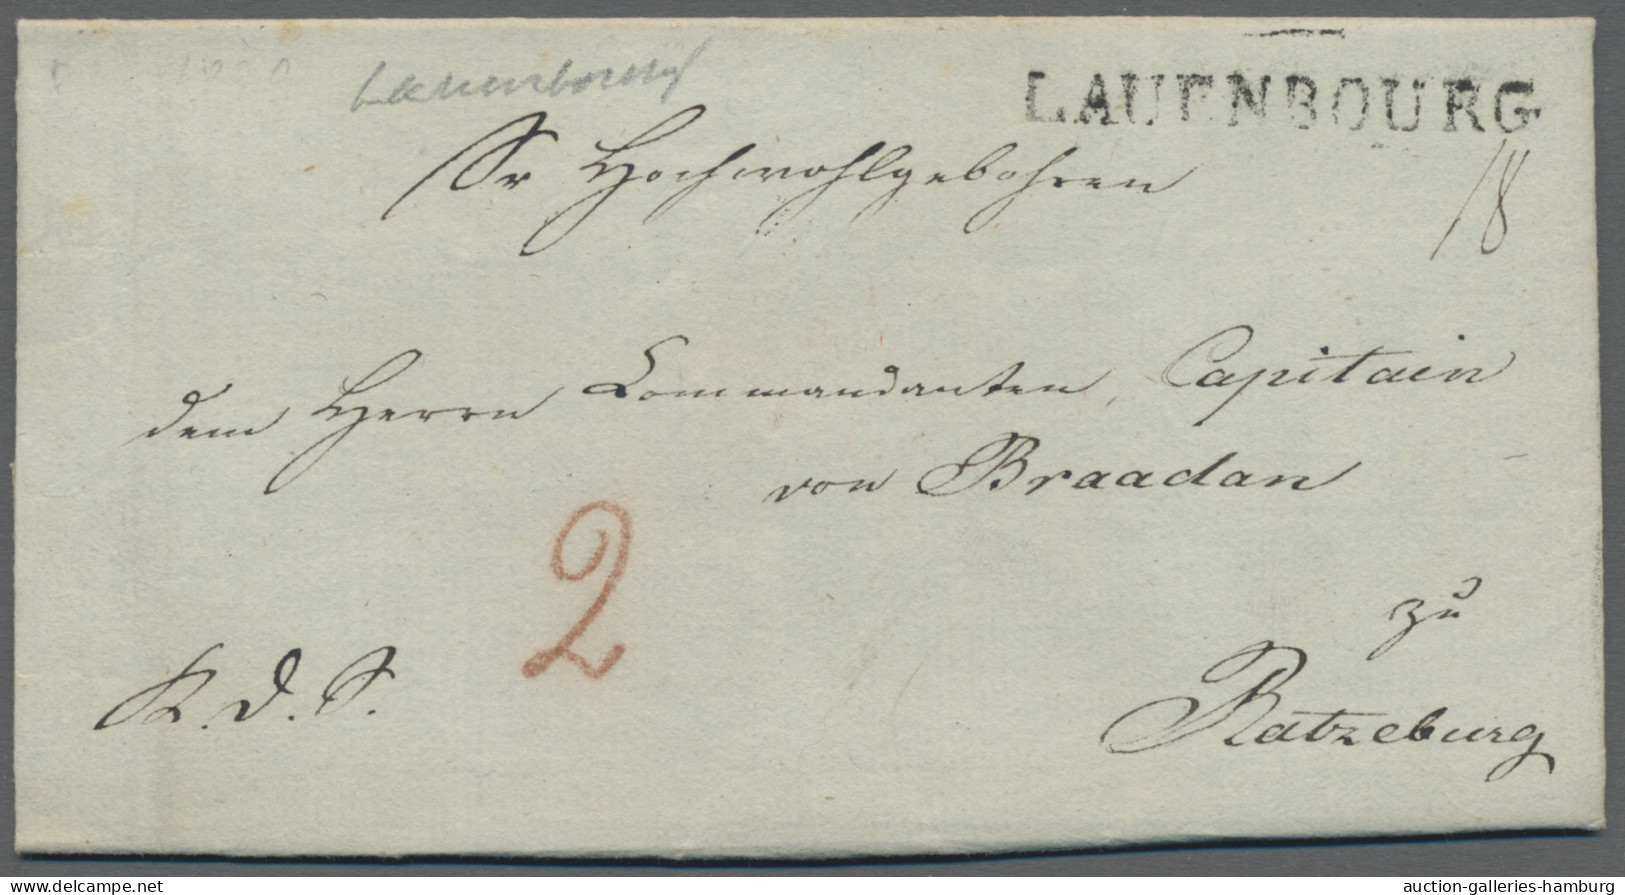 Lauenbourg
LAUENBOURG
Sr Hochwohlgebohren
18
dem Herrn Commandanten, Capitain
von Braadan
2
zu
K. d. S.
Ratzeburg
www.delcampe.net
auction-galleries-hamburg